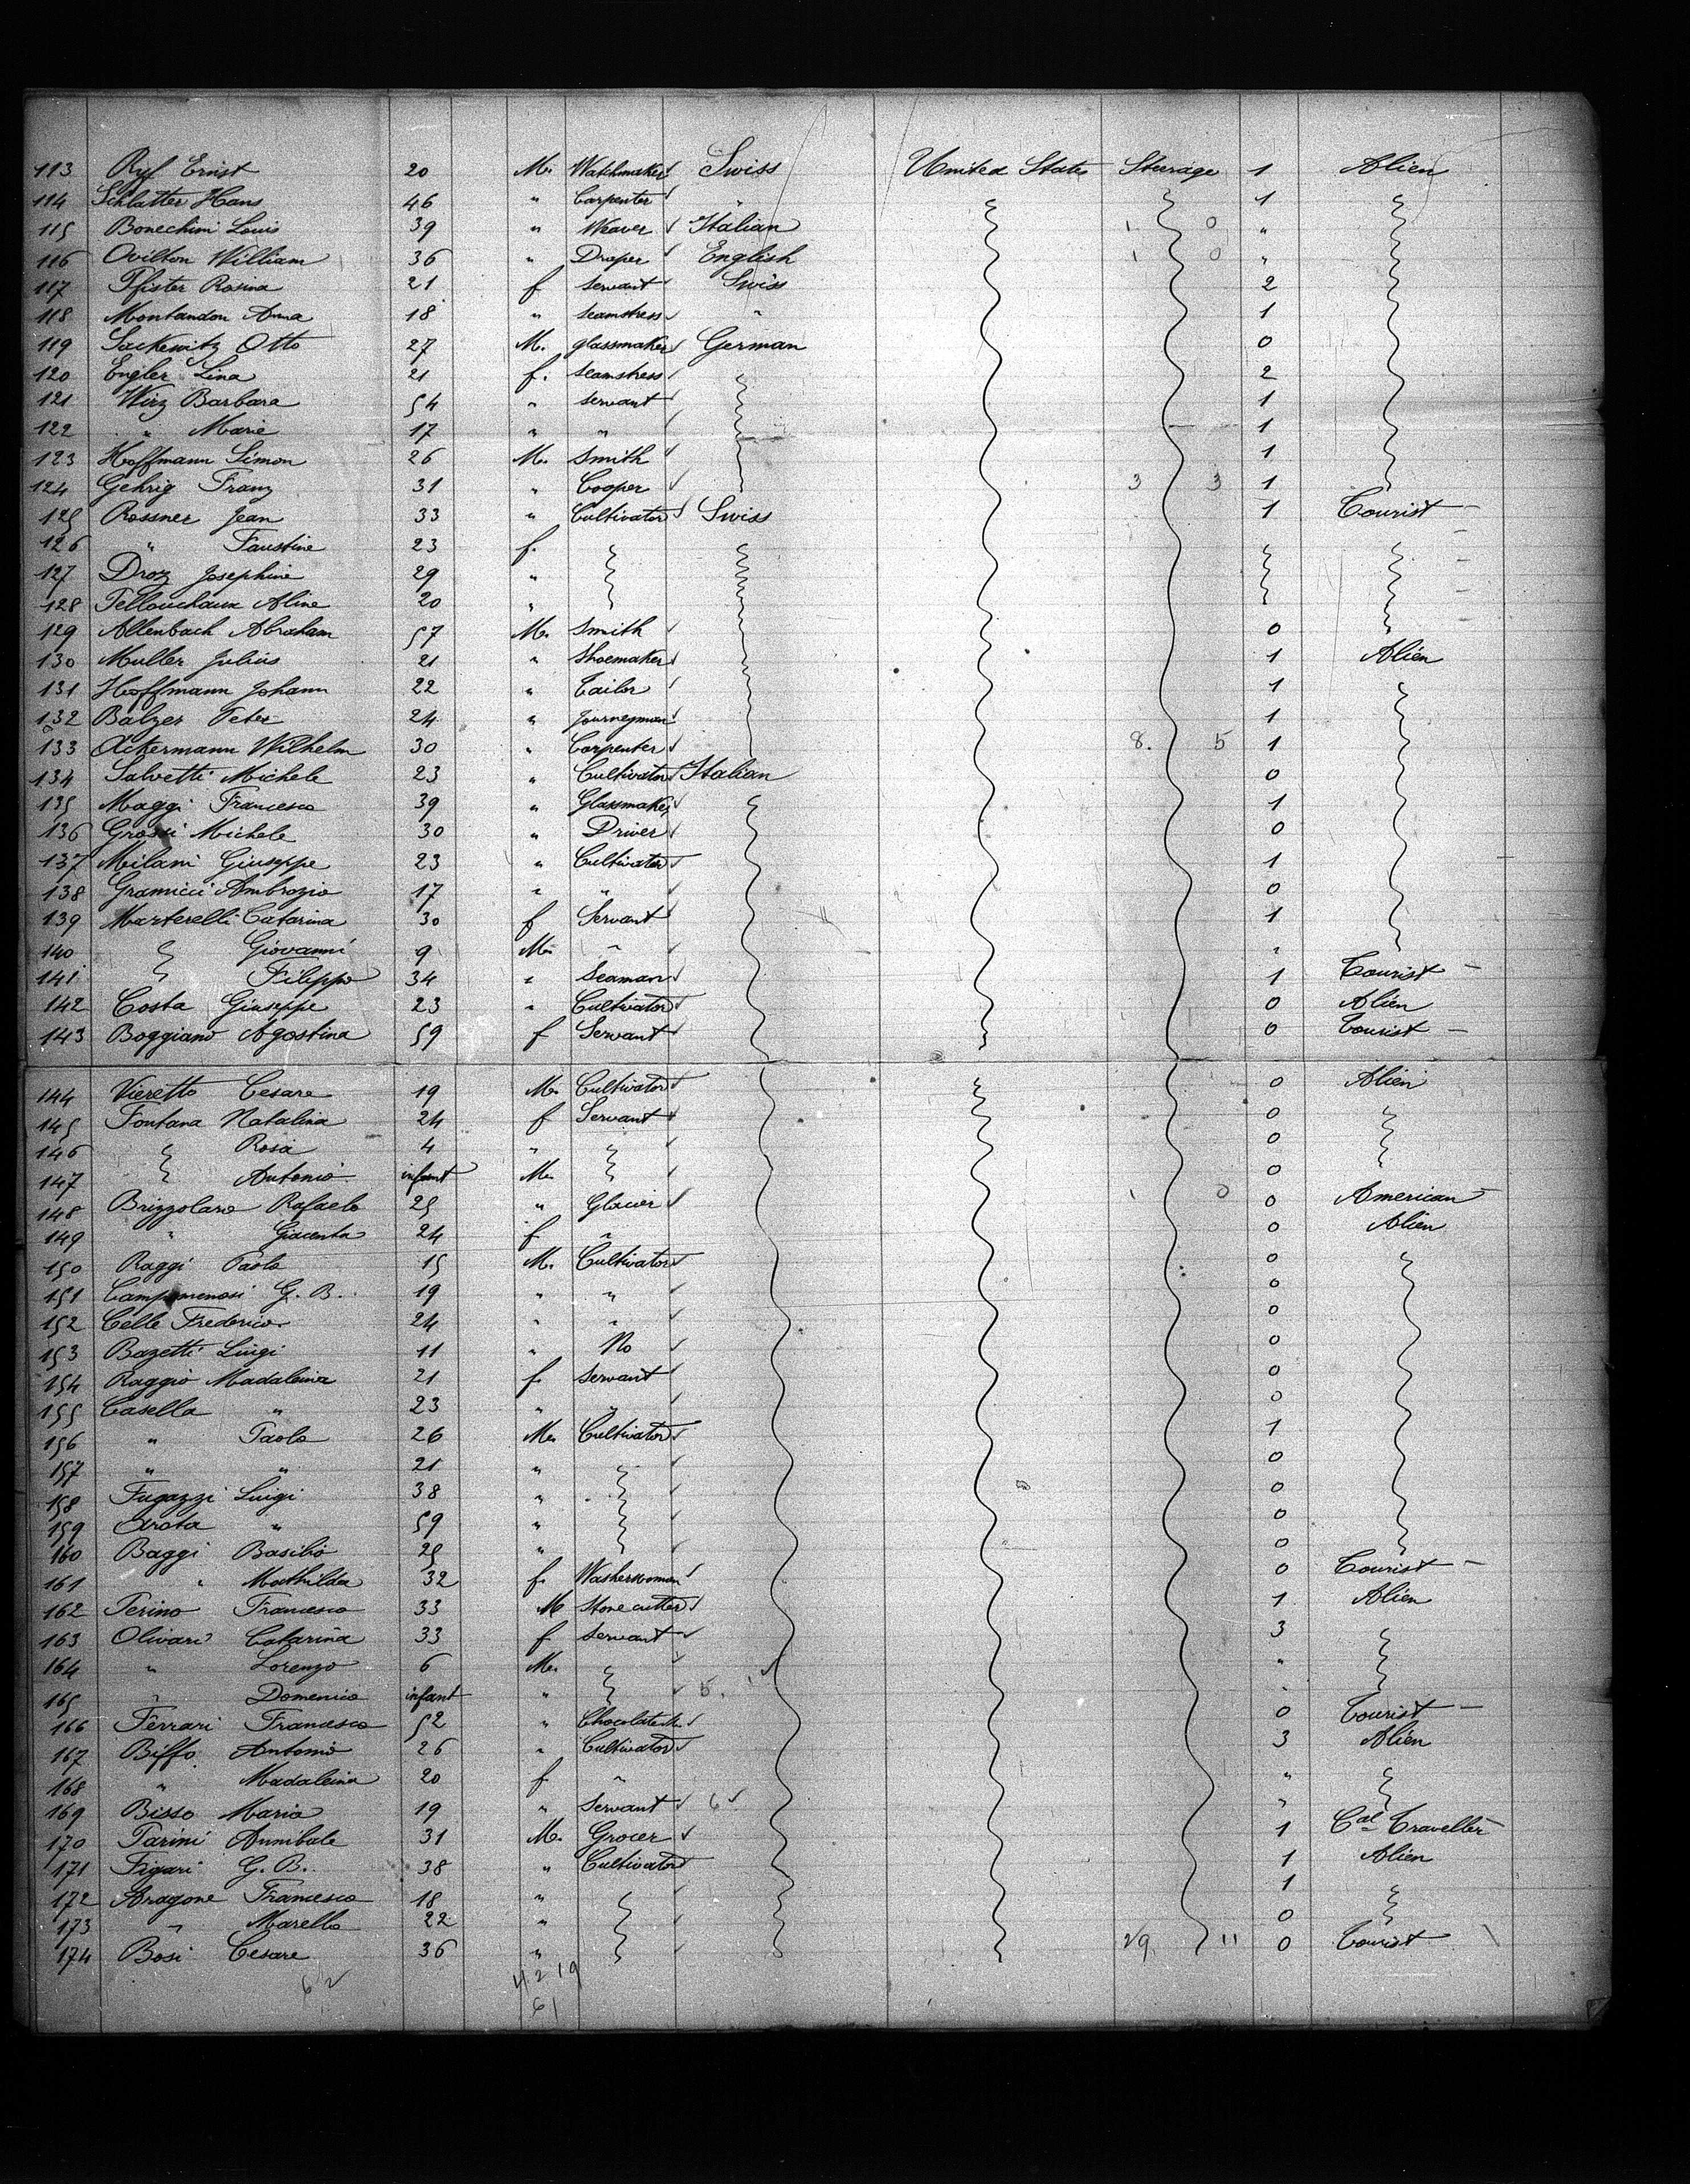 113 Ryf Ernst 20 M. Watchmaker Swiss United States Steerage 1 Alien
114 Schlatter Hans 46 " Carpenter " 1
115 Bonechini Louis 39 " Weaver Italian 1 0 "
116 Ovilton William 36 " Draper English 1 0 "
117 Pfister Rosina 21 f Servant Swiss 2
118 Montandon Anna 18 " Seamstress " 1
119 Sackewitz Otto 27 M. glassmaker German 0
120 Engler Lina 21 f. Seamstress 2
121 Wirz Barbara 54 " Servant 1
122 " Marie 17 " " 1
123 Hoffmann Simon 26 M. Smith 1
124 Gehrig Franz 31 " Cooper 3 3 1
125 Rossner Jean 33 " Cultivator Swiss 1 Tourist
126 " Faustine 23 f.
127 Droz Josephine 29 "
128 Pellouchaux Aline 20 "
129 Allenbach Abraham 57 M. Smith 0
130 Muller Julius 21 " Shoemaker 1 Alien
131 Hoffmann Johann 22 " Tailor 1
132 Balzer Peter 24 " Journeyman 1
133 Ackermann Wilhelm 30 " Carpenter 8. 5 1
134 Salvetti Michele 23 " Cultivator Italian 0
135 Maggi Francesco 39 " Glassmaker 1
136 Grossi Michele 30 " Driver 0
137 Milani Giuseppe 23 " Cultivator 1
138 Gramicci Ambrozio 17 " " 0
139 Marterelli Catarina 30 f Servant 1
140 Giovanni 9 M. " "
141 Filippo 34 " Seaman 1 Tourist
142 Costa Giuseppe 23 " Cultivator 0 Alien
143 Boggiano Agostina 59 f Servant 0 Tourist
144 Vieretto Cesare 19 M. Cultivator 0 Alien
145 Fontana Natalina 24 f Servant 0
146 Rosa 4 " 0
147 Antonio infant M. 0
148 Brizzolara Rafaele 25 " Glacier 1 0 0 American
149 " Giacenta 24 f " 0 Alien
150 Raggi Paolo 15 M. Cultivator 0
151 Campomenosi G. B. 19 " " 0
152 Celle Frederico 24 " " 0
153 Bazetti Luigi 11 " No 0
154 Raggio Madaleina 21 f. Servant 0
155 Casella " 23 " " 0
156 " Paolo 26 M. Cultivator 1
157 " " 21 " 0
158 Fugazzi Luigi 38 " 0
159 Arata " 59 " 0
160 Baggi Basilio 25 " 0
161 " Mathilda 32 f. Washerwoman 0 Tourist
162 Perino Francesco 33 M Stone cutter 1 Alien
163 Olivari Catarina 33 f Servant 3
164 " Lorenzo 6 M. "
165 " Domenico infant " 5. "
166 Ferrari Francesco 52 " Chocolate M. 0 Tourist
167 Biffo Antonio 26 " Cultivator 3 Alien
168 " Madaleina 20 f " "
169 Bisso Maria 19 " Servant 6 "
170 Parini Annibale 31 M. Grocer 1 Cal Traveller
171 Figari G. B. 38 " Cultivator 1 Alien
172 Aragone Francesco 18 " 1
173 " Marello 22 " 0
174 Bosi Cesare 36 " 29. 11 0 Tourist
62 42 19
61